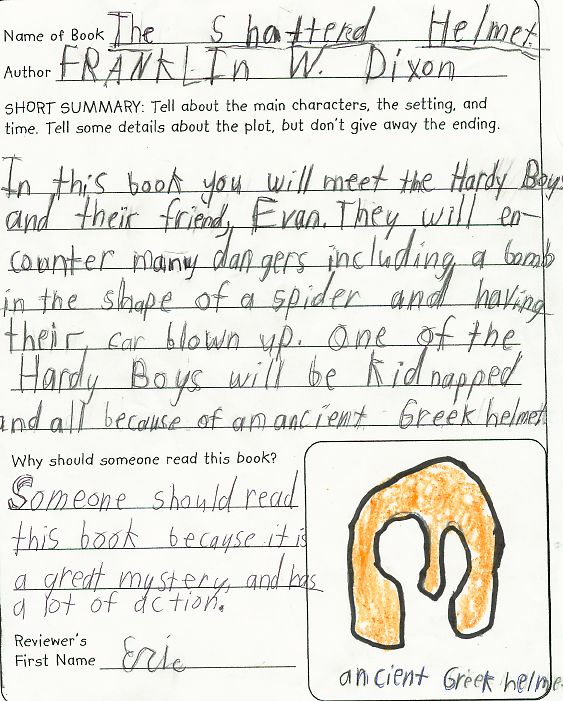 Name of Book The Shatterd Helmet
Author FRANKLIn W. Dixon
SHORT SUMMARY: Tell about the main characters, the setting, and
time. Tell some details about the plot, but don't give away the ending.
In this book you will meet the Hardy Boys
and their friend, Evan. They will en-
counter many dangers including a bomb
in the shape of a spider and having
their car blown up. One of the
Hardy Boys will be kidnapped
and all because of an ancient Greek helmet
Why should someone read this book?
Someone should read
this book because it is
a great mystery, and has
a lot of action.
Reviewer's
First Name Eric
ancient Greek helme